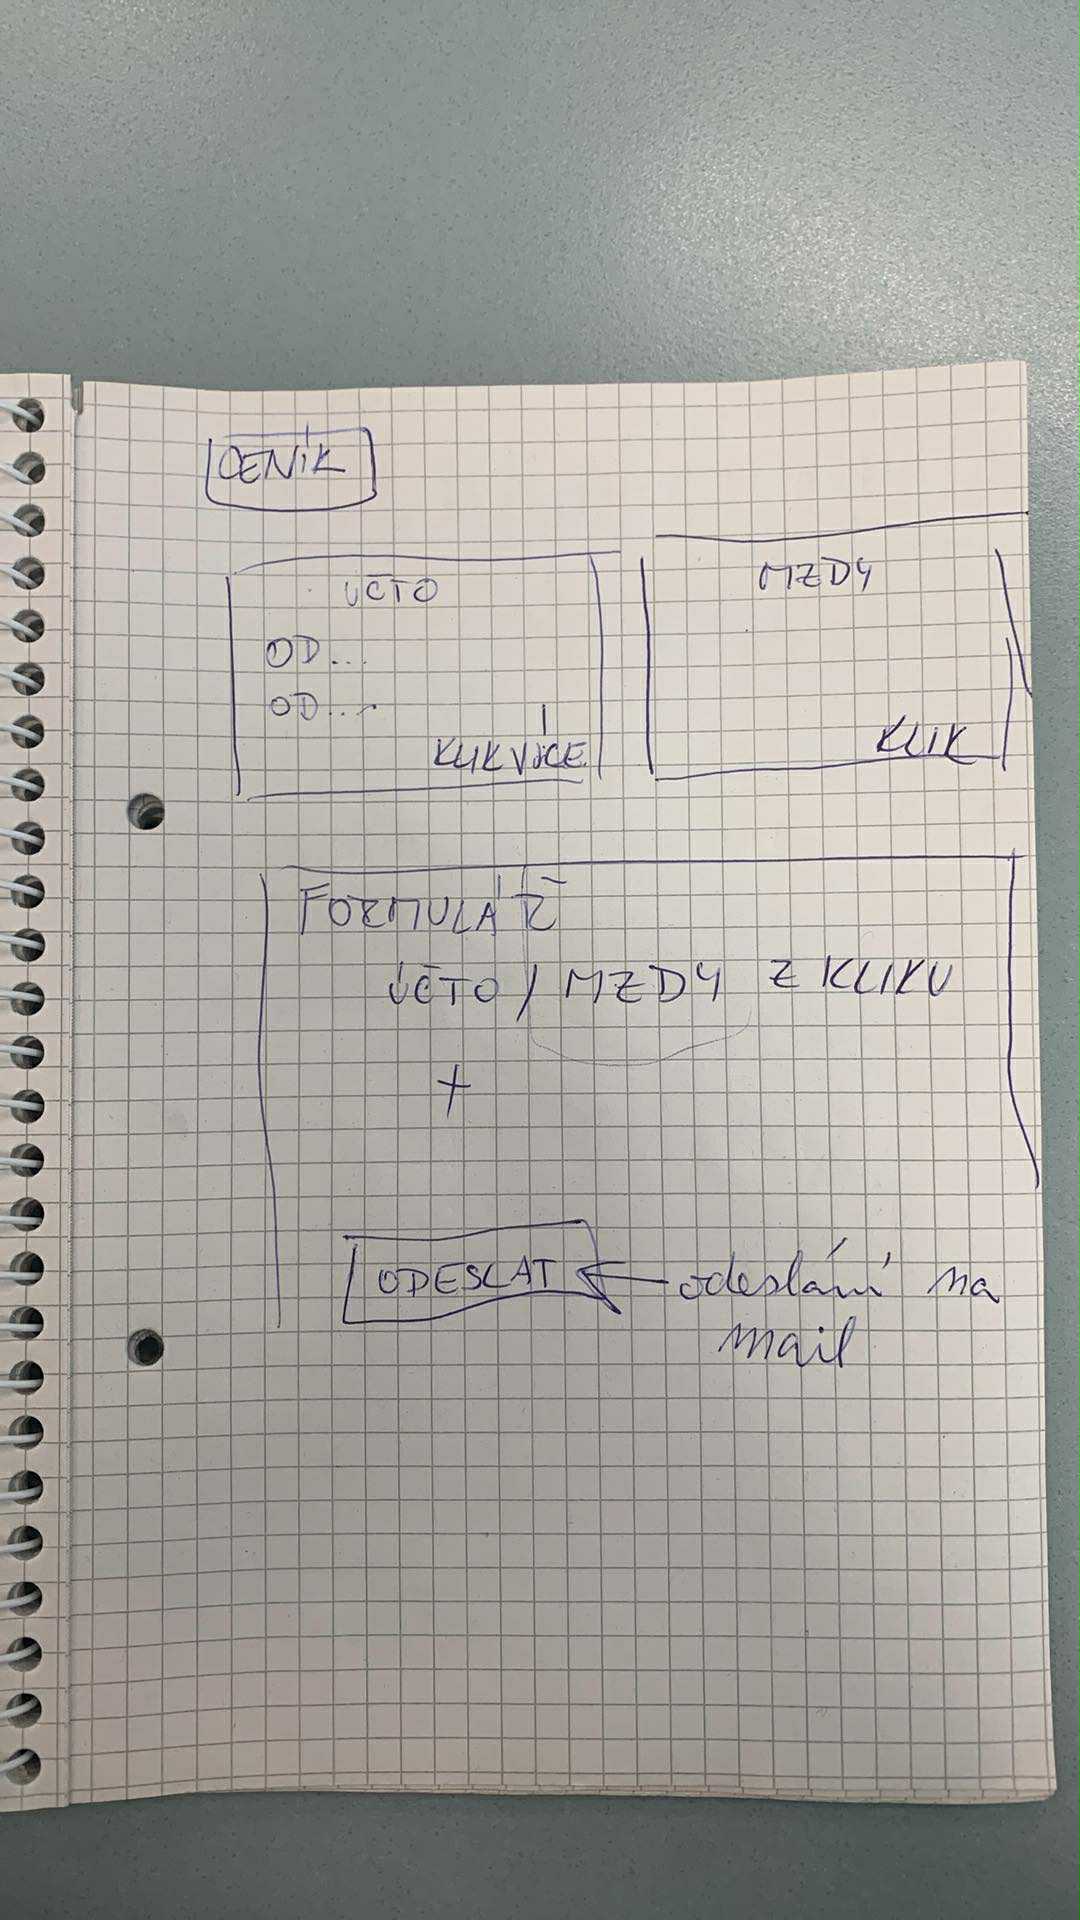 CENÍK
ÚČTO
OD...
OD...
KLIK VÍCE
MZDY
KLIK
FORMULÁŘ
ÚČTO / MZDY Z KLIKU
+
ODESLAT ← odeslání na
mail